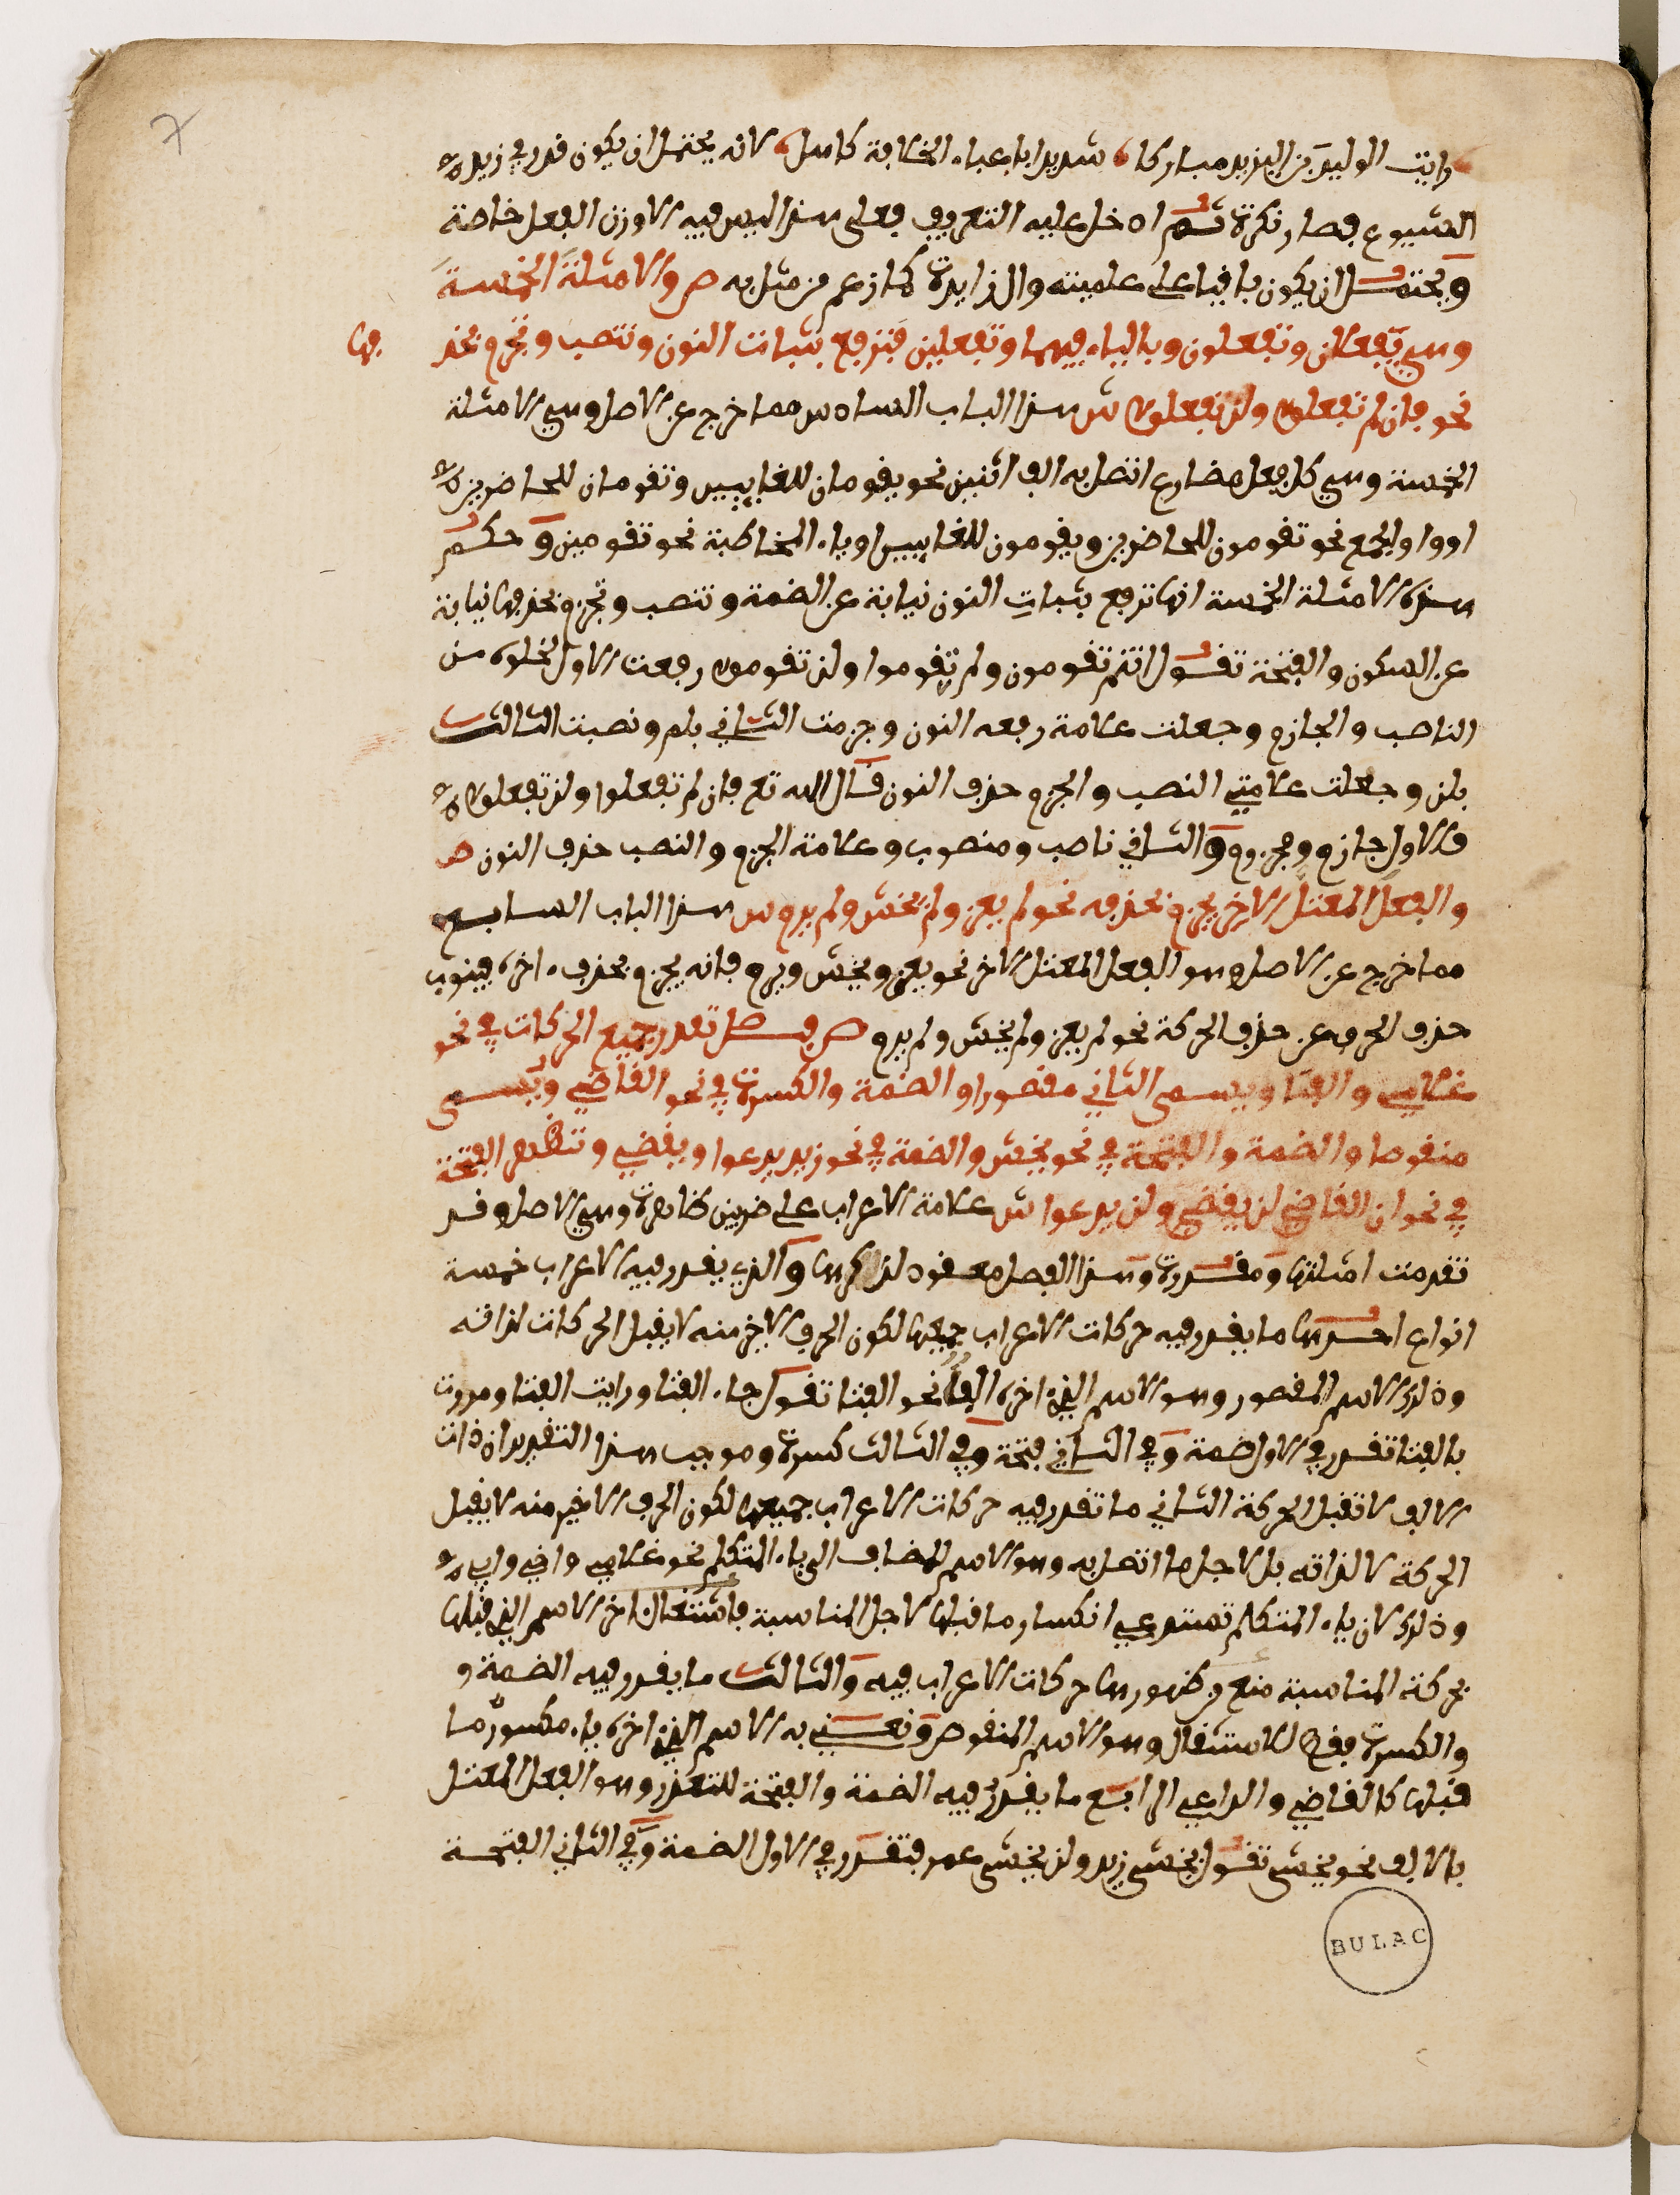 رايت الوليد بن اليزيد مباركا شديدا باعباء الخلافة كاهله لانه يحتمل ان يكون قدر في زيد
الشيوع فصار نكرة ثم ادخل عليه التعريف فعلى هذا ليس فيه الا وزن الفعل خاصة
ويحتمل ان يكون باقيا على علميته وال زايدة كما زعم من مثل به ص والامثلة الخمسة
وهي تفعلان وتفعلون وبالياء فيهما وتفعلين فترفع بثبات النون وتنصب وتجزم بحذ فها
نحو فان لم تفعلوا ولن تفعلوا ش هذا الباب السادس مما خرج عن الاصل وهي الامثلة
الخمسة وهي كل فعل مضارع اتصل به الف اثنين نحو يقومان للغايبين وتقومان للحاضرين
او واو الجمع نحو تقومون للحاضرين ويقومون للغايبين او ياء المخاطبة نحو تقومين وحكم
هذه الامثلة الخمسة انها ترفع بثبات النون نيابة عن الضمة وتنصب وتجزم بحذفها نيابة
عن السكون والفتحة تقول انتم تقومون ولم تقوموا ولن تقوموا رفعت الاول لخلوه من
الناصب والجازم وجعلت علامة رفعه النون وجزمت الثاني بلم ونصبت الثالث
بلن وجعلت علامتي النصب والجزم حذف النون قال الله تع فان لم تفعلوا ولن تفعلوا
فالاول جازم ومجزوم والثاني ناصب ومنصوب وعلامة الجزم والنصب حذف النون ص
والفعل المعتل الاخر يجزم بحذفه نحو لم يغز ولم يخش ولم يرم ش هذا الباب السابع
مما خرج عن الاصل وهو الفعل المعتل الاخر نحو يغزو يخش ويرم فانه يجزم بحذف اخره فينوب
حذف الحرف عن حذف الحركة نحو لم يغز ولم يخش ولم يرم ص فصل تقدر جميع الحركات في نحو
غلامي والفتا ويسمى الثاني مقصورا والضمة والكسرة في نحو القاضي ويسمى
منقوصا والضمة والفتحة في نحو يخش والضمة في نحو زيد يدعوا ويقضي وتظهر الفتحة
في نحو ان القاضي لن يقضي ولن يدعوا ش علامة الاعراب على ضربين ظاهرة وهي الاصل وقد
تقدمت امثلتها ومقدرة وهذا الفصل معقود لذكرها والذي يقدر فيه الاعراب خمسة
انواع احدها ما يقدر فيه حركات الاعراب جميعها لكون الحرف الاخر منه لا يقبل الحركات لذاته
وذلك الاسم المقصور وهو الاسم الذي اخره الف نحو الفتا تقول جاء الفتا ورايت الفتا ومررت
بالفتا تقدر في الاول ضمة وفي الثاني فتحة وفي الثالث كسرة وموجب هذا التقدير ان ذات
الالف لا تقبل الحركة الثاني ما تقدر فيه حركات الاعراب جميعها لكون الحرف الاخير منه لا يقبل
الحركة لا لذاته بل لاجل ما اتصل به وهو الاسم المضاف الى ياء المتكلم نحو غلامي واخي وابي
وذلك لان ياء المتكلم تستدعي انكسار ما قبلها لاجل المناسبة فاشتغال اخر الاسم الذي قبلها
بحركة المناسبة منع من ظهور حركات الاعراب فيه والثالث ما يقدر فيه الضمة و
والكسرة فقط للاستثقال وهو الاسم المنقوص ونعني به الاسم الذي اخره ياء مكسور ما
قبلها كالقاضي والداعي الرابع ما يقدر فيه الضمة والفتحة للتعذر وهو الفعل المعتل
بالالف نحو يخشى تقول يخشى زيد ولن يخشى عمر فتقدر في الاول الضمة وفي الثاني الفتحة
BULAC